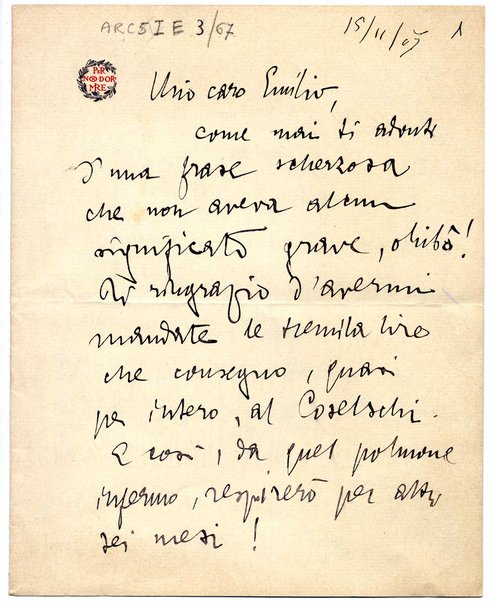 ARC5IE 3/67
15/11/07 1
PER
NON DOR
MIRE
Mio caro Emilio,
come mai ti adonti
d'una frase scherzosa
che non aveva alcun
significato grave, ohibò!
Ti ringrazio d'avermi
mandate le tremila lire
che consegno, quasi
per intero, al Coselschi.
E così, da quel polmone
infermo, respirerò per altri
sei mesi!